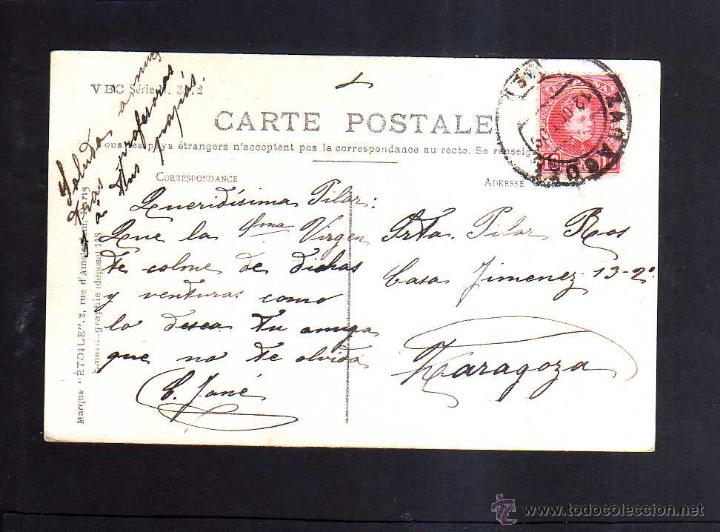 VBC Série N. 3
CARTE POSTALE
Tous les pays étrangers n'acceptent pas la correspondance au recto. Se renseig
CORRESPONDANCE
ADRESSE
Queridísima Pilar:
Que la Sma Virgen
te colme de dichas
y venturas como
lo desea tu amiga
que no te olvida
C. Jané
Srta. Pilar Ros
Casa Jimenez 13-2º
Zaragoza
Saludos a
profesoras
papás.
Marque "ETOILE" 2, rue d'
ZARAGOZA
www.todocoleccion.net